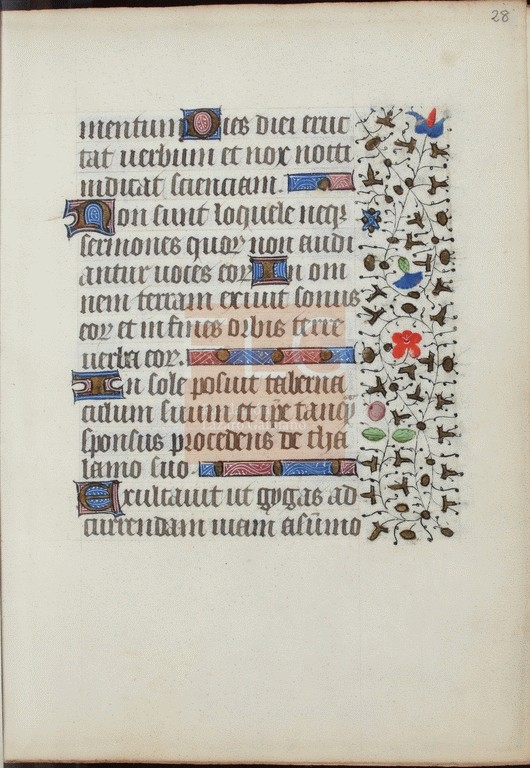 28
mentum Dies diei eruc
tat uerbum et nox nocti
indicat scienciam.
Non sunt loquele neqꝫ
sermones quoꝝ non audi
antur uoces eoꝝ In om
nem terram exiuit sonus
eoꝝ et in fines orbis terre
uerba eoꝝ.
In sole posuit taberna
culum suum et ip̄e tanqͣ
sponsus procedens de tha
lamo suo.
Exultauit ut gygas ad
currendam uiam a sūmo
FLG